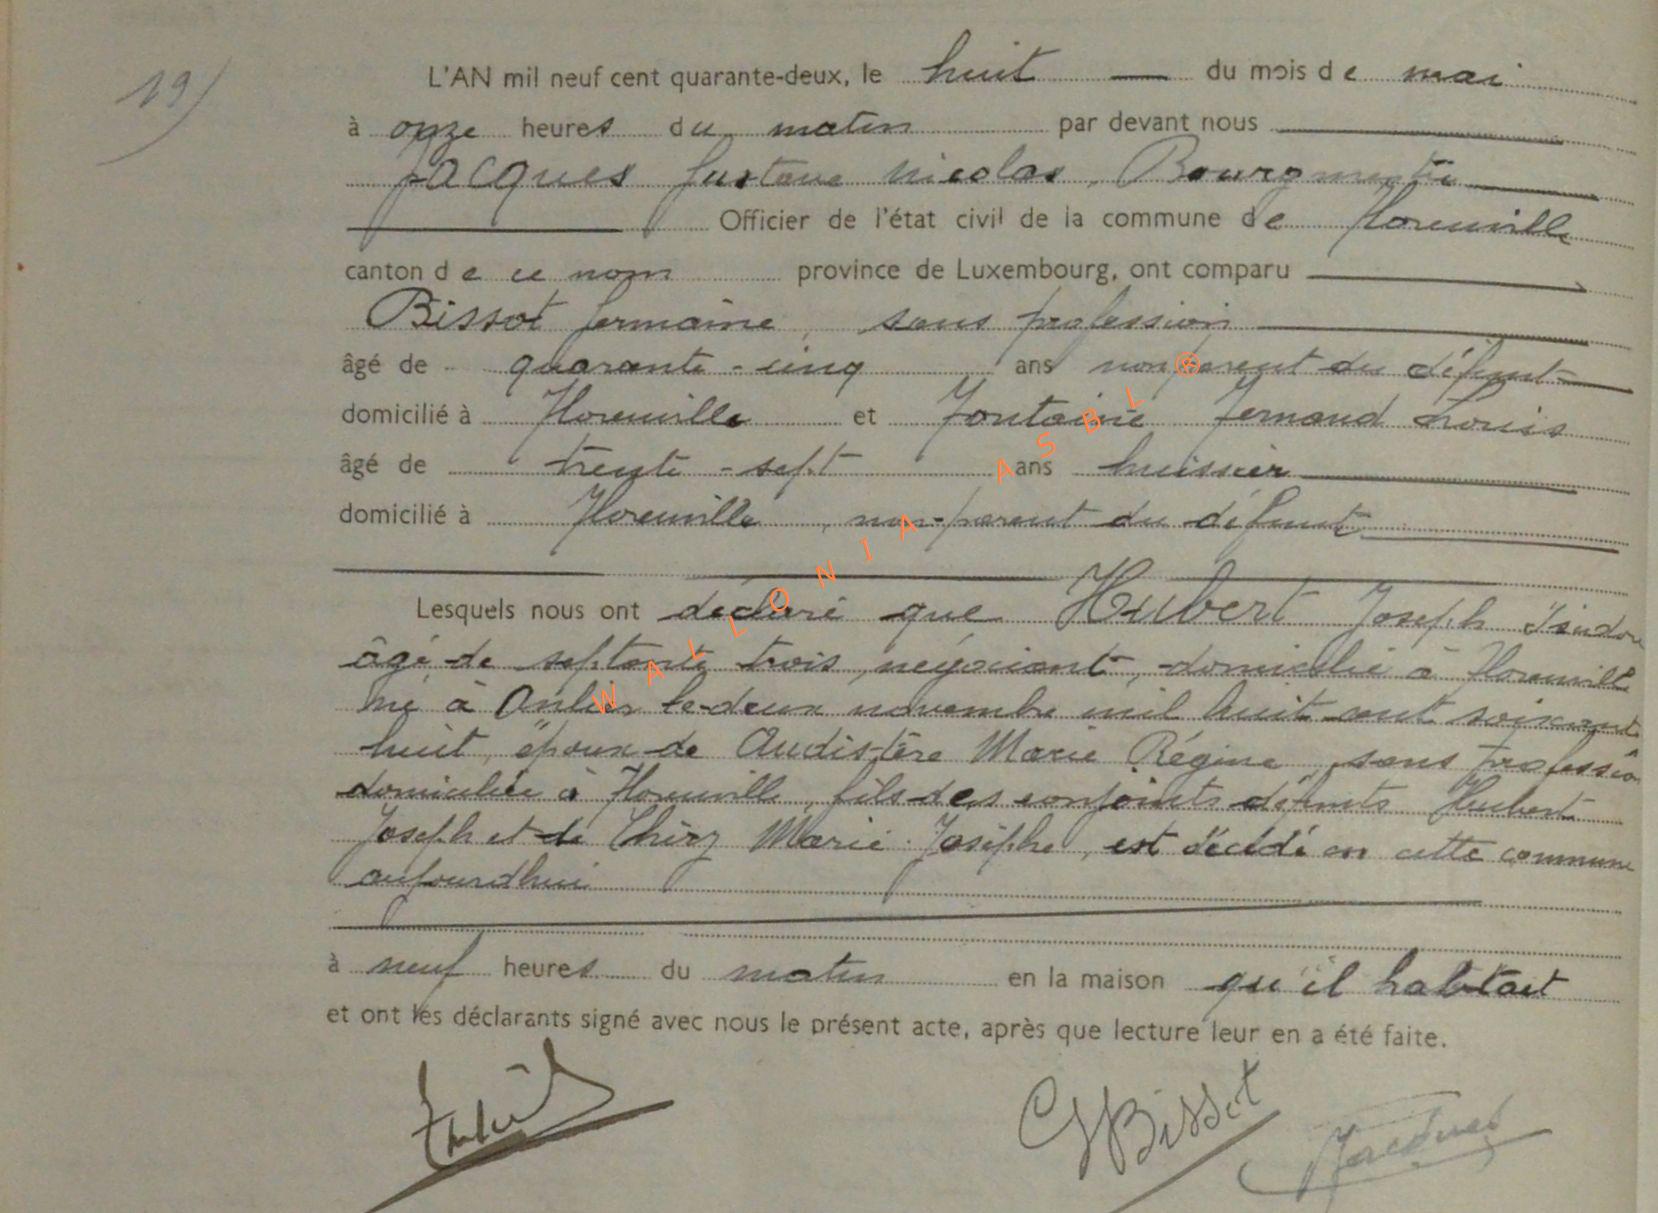 19)
L'AN mil neuf cent quarante-deux, le huit — du mois de mai
à onze heures du matin par devant nous
Jacques Gustave Nicolas, Bourgmestre
Officier de l'état civil de la commune de Florenville
canton de ce nom province de Luxembourg, ont comparu
Bissot Germaine, sans profession
âgé de quarante-cinq ans non parent du défunt
domicilié à Florenville et Fontaine Fernand Louis
âgé de trente-sept ans huissier
domicilié à Florenville, non-parent du défunt
Lesquels nous ont déclaré que Hubert Joseph Isidore
âgé de septante trois, négociant, domicilié à Florenville
né à Anlier le deux novembre mil huit cent soixante
huit, époux de Audistère Marie Régine, sans profession
domiciliée à Florenville, fils des conjoints défunts Hubert
Joseph et de Thiry Marie Josèphe, est décédé en cette commune
aujourd'hui
à neuf heures du matin en la maison qu'il habitait
et ont les déclarants signé avec nous le présent acte, après que lecture leur en a été faite.
GBissot
Jacques
WALLONIA ASBL ®